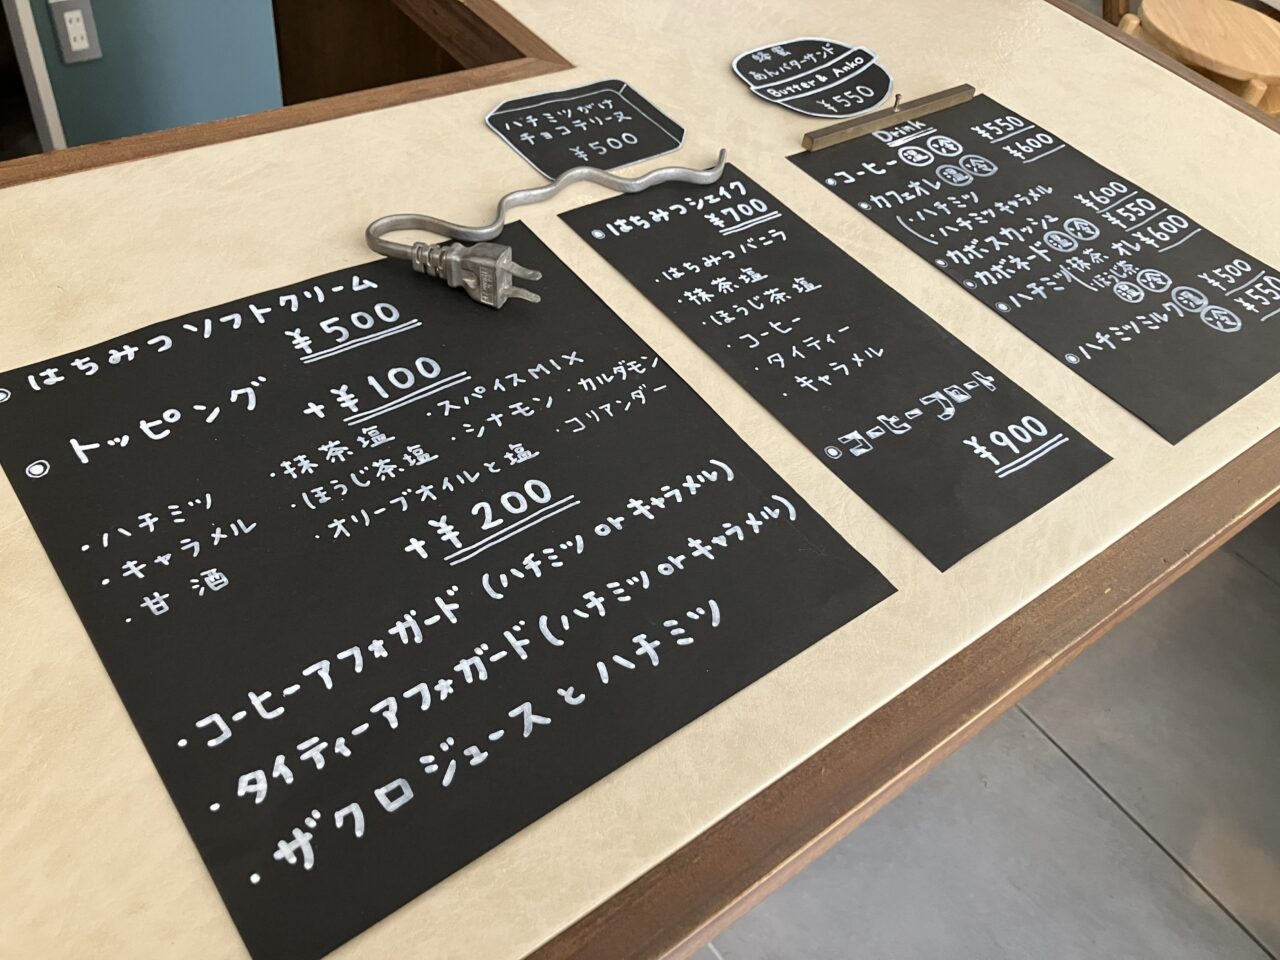 蜂蜜
あんバターサンド
Butter & Anko
¥550
ハチミツがけ
チョコテリーヌ
¥500
◉はちみつソフトクリーム
¥500
◉トッピング
+¥100
・ハチミツ
・キャラメル
・甘酒
・抹茶塩
・ほうじ茶塩
・オリーブオイルと塩
・スパイスMIX
・シナモン
・カルダモン
・コリアンダー
+¥200
・コーヒーアフォガード(ハチミツ or キャラメル)
・タイティーアフォガード(ハチミツ or キャラメル)
・ザクロジュースとハチミツ
◉はちみつシェイク
¥700
・はちみつバニラ
・抹茶塩
・ほうじ茶塩
・コーヒー
・タイティー
・キャラメル
◉コーヒーフロート
¥900
Drink
◉コーヒー 温 冷 ¥550
◉カフェオレ 温 冷 ¥600
(・ハチミツ
・ハチミツキャラメル
◉カボスカッシュ ¥600
◉カボネード 温 冷 ¥550
◉ハチミツ抹茶オレ ¥600
(ほうじ茶 温 冷
◉ハチミツミルク 温 ¥500
冷 ¥550